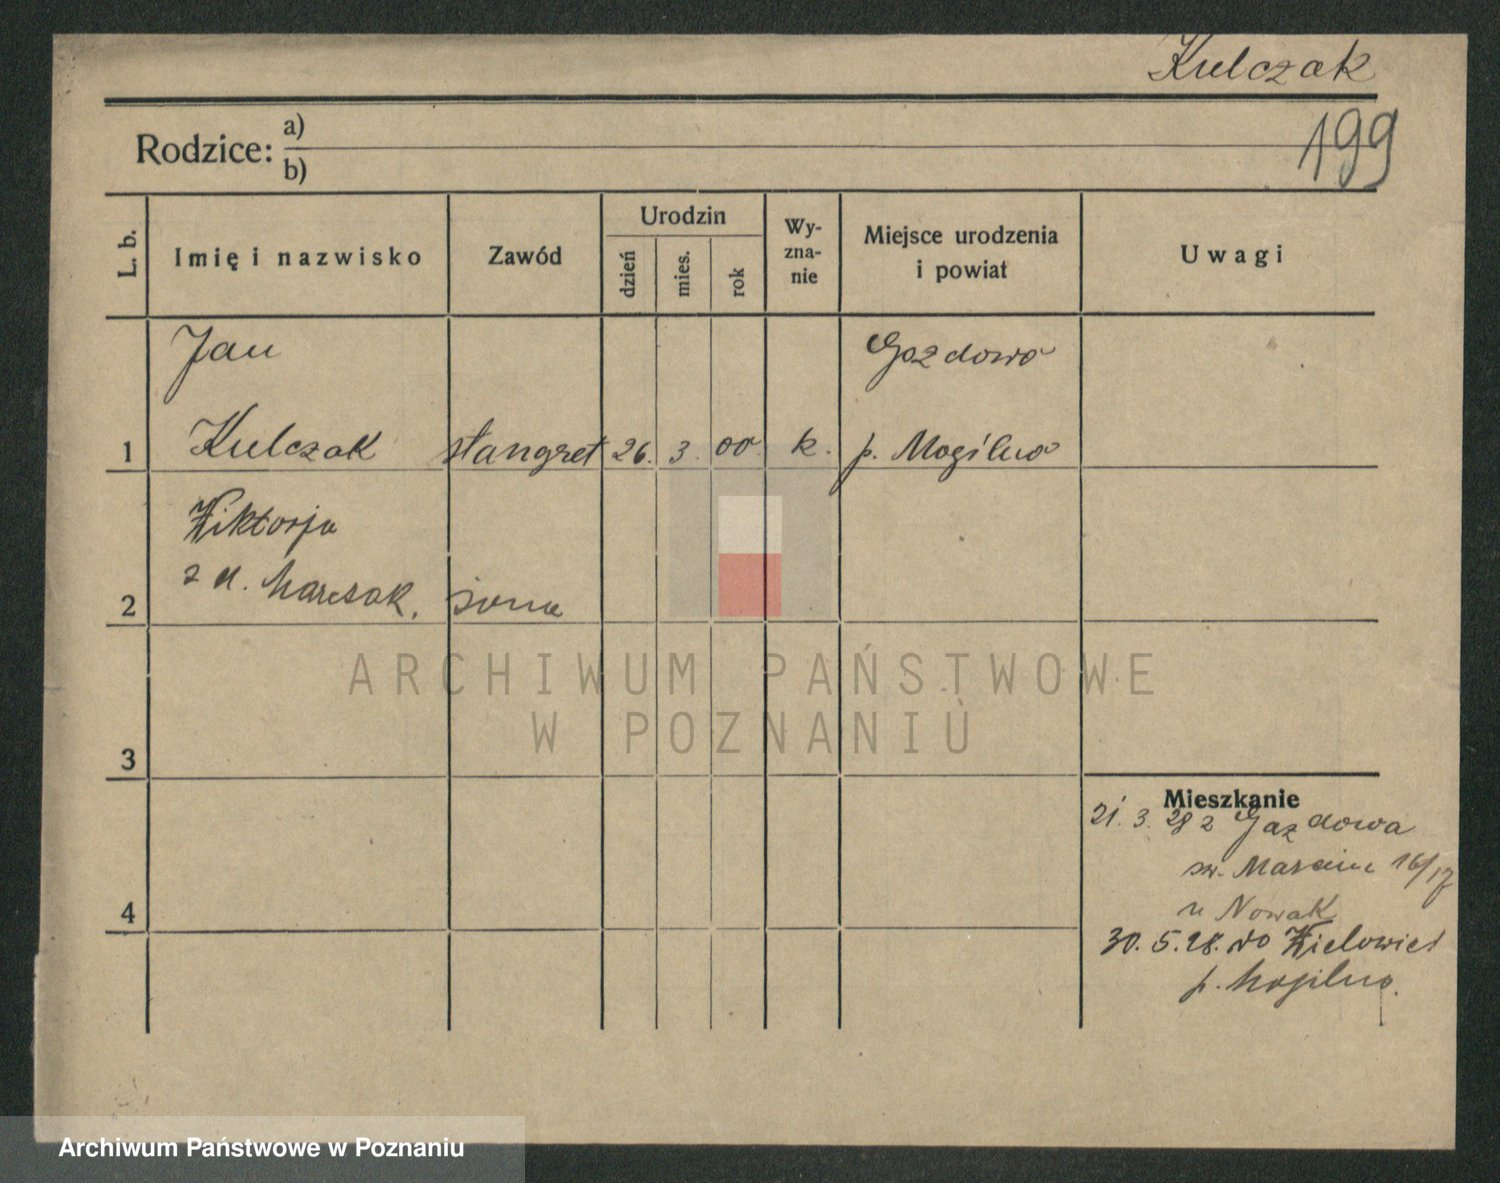 Kulczak
199
Rodzice: a)
b)
L. b.
Imię i nazwisko
Zawód
Urodzin
dzień
mies.
rok
Wy-
zna-
nie
Miejsce urodzenia
i powiat
Uwagi
Jan
Gozdowo
1 Kulczak stangret 26. 3. 00 k. p. Mogilno
Wiktorja
2 z d. żona
3
4
Mieszkanie
21. 3. 28 z Gozdowa
św. Marcin 16/17
u Nowak
30. 5. 28. do
p. Mogilno.
ARCHIWUM PAŃSTWOWE
W POZNANIU
Archiwum Państwowe w Poznaniu